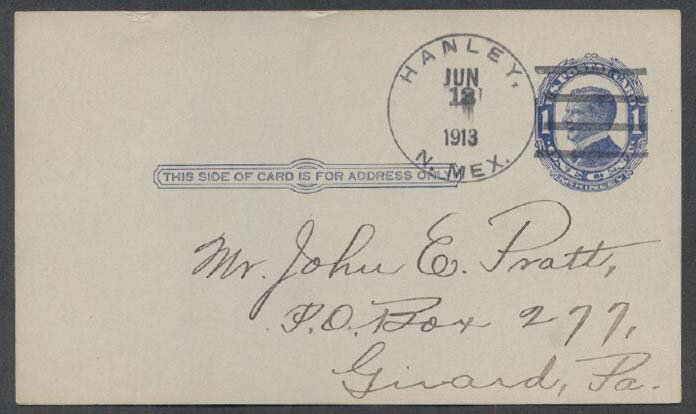 HANLEY,
JUN
12
1913
N. MEX.
1 1
McKINLEY
THIS SIDE OF CARD IS FOR ADDRESS ONLY
Mr. John E. Pratt,
P.O. Box 277,
Girard, Pa.